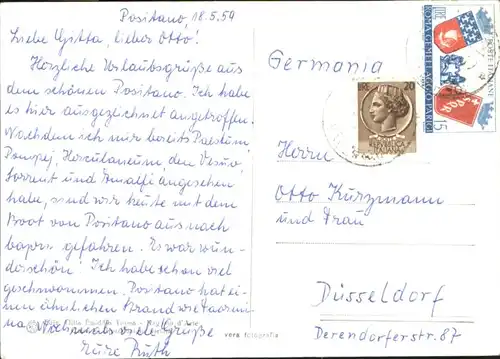 Positano, 18.5.59
Liebe Gitta, lieber Otto!
Herzliche Urlaubsgrüße aus
dem schönen Positano. Ich habe
es hier ausgezeichnet angetroffen.
Nachdem ich mir bereits Paestum,
Pompej, Herculaneum den Vesuv,
Sorrent und Amalfi angesehen
habe, sind wir heute mit dem
Boot von Positano aus nach
gefahren. Es war wun-
derschön! Ich habe schon viel
geschwommen. Positano hat ei-
nen ähnlichen Strand wie Taormi-
na. Nochmals viele Grüße
Eure Ruth
vera fotografia
Germania
LIRE 20
ROMA GEMELLAGGIO PARIGI
15
Herrn
Otto Kürzmann
und Frau
Düsseldorf
Derendorferstr. 87